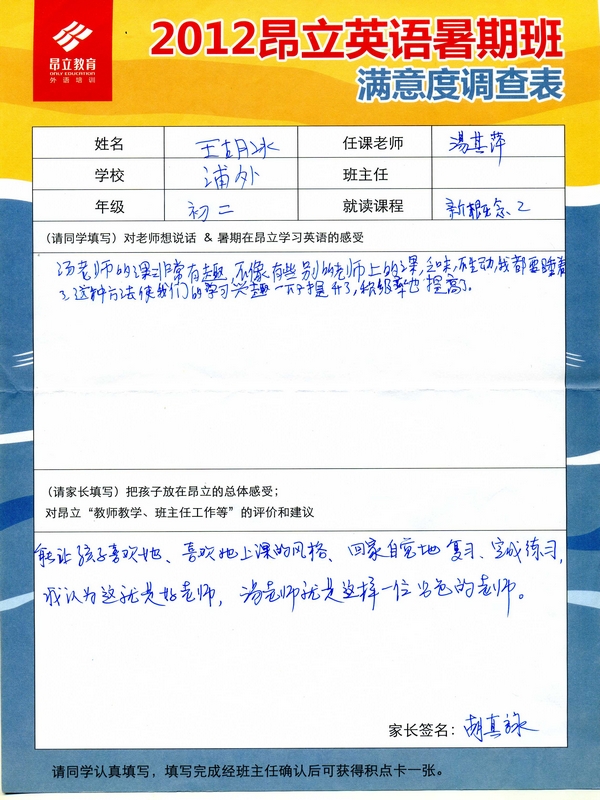 昂立教育
ONLY EDUCATION
外语培训
2012昂立英语暑期班
满意度调查表
姓名 王胡冰 任课老师 汤其萍
学校 浦外 班主任
年级 初二 就读课程 新概念2
(请同学填写)对老师想说话 & 暑期在昂立学习英语的感受
汤老师的课非常有趣,不像有些别的老师上的课,乏味,不生动,我都要睡着
了,这种方法使我们的学习兴趣一下子提升了,积极率也提高了。
(请家长填写)把孩子放在昂立的总体感受;
对昂立“教师教学、班主任工作等”的评价和建议
能让孩子喜欢她、喜欢她上课的风格、回家自觉地复习、完成练习,
我认为这就是好老师,汤老师就是这样一位出色的老师。
家长签名: 胡真
请同学认真填写,填写完成经班主任确认后可获得积点卡一张。